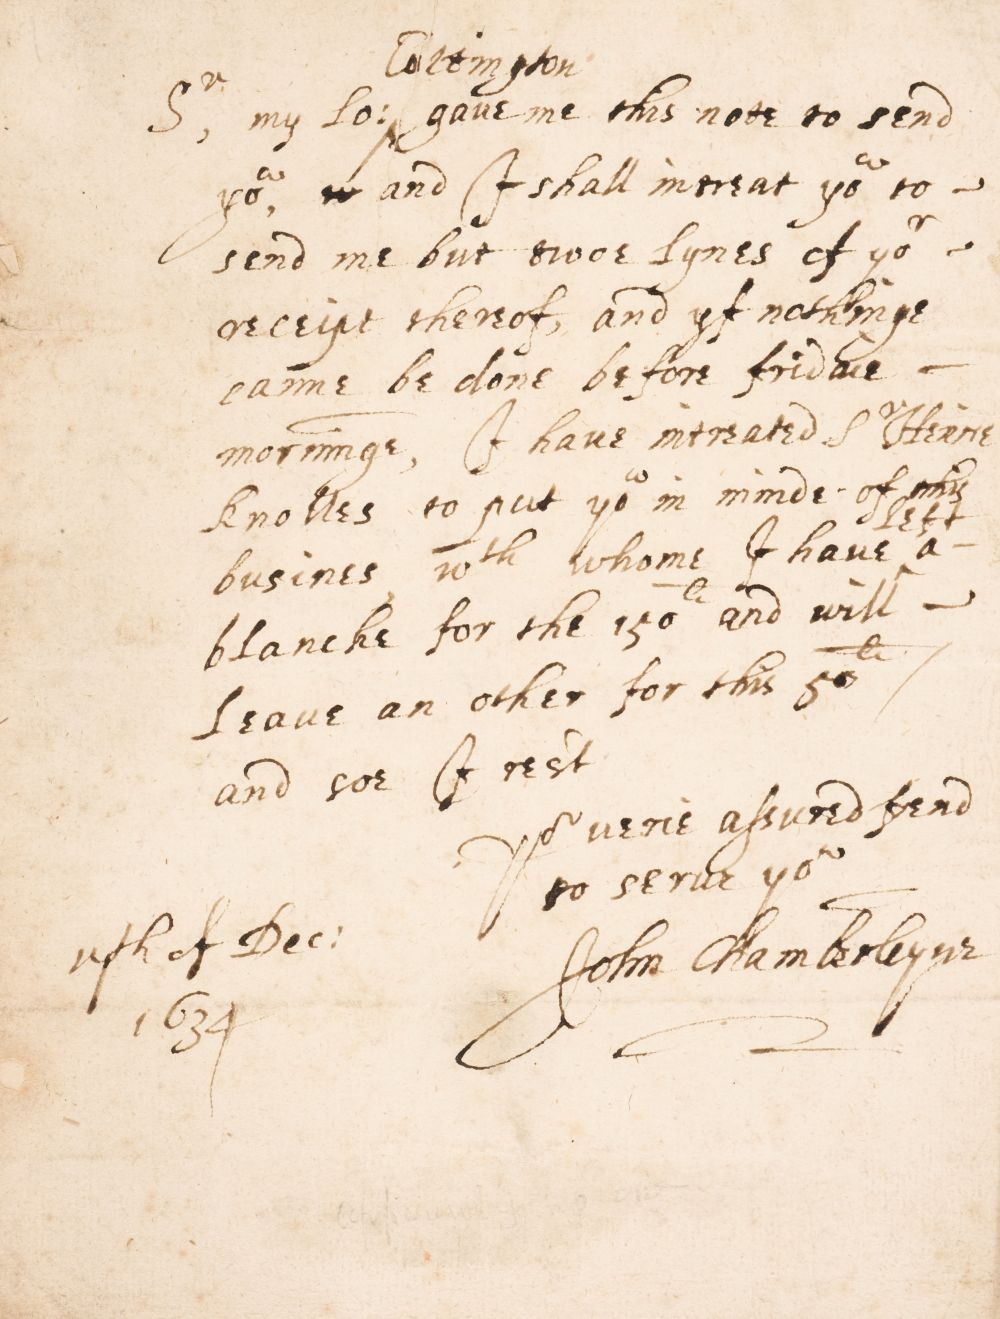 Cottington
Sr, my Lo: gave me this note to send
you, and I shall intreat you to
send me but twoe lynes of yor
receipt thereof, and yf nothinge
canne be done before fridaie
morninge, I have intreated Sr Henrie
Knolles to put you in minde of this
left
busines, wth whome I have a
blancke for the 150li and will
leave an other for this 50li
and soe I rest
Yor verie assured frend
to serve you
John Chamberleyne
of Dec:
1634